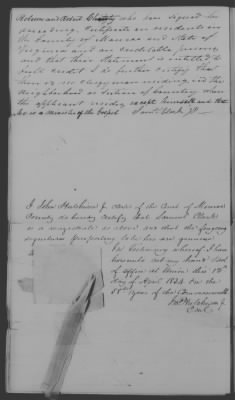 Robison and Robert Chantly who has signed the
preceding Certificate are residents in
the County of Monroe and State of
Virginia and are creditable persons
and that their Statement is entitled to
full credit I do further certify that
there is no Clergyman residing in the
Neighborhood or section of Country where
the applicant resides except himself and that
he is a minister of the Gospel Saml Clark JP
I John Hutchinson Jr Clerk of the Court of Monroe
County do hereby certify that Samuel Clark
is a magistrate as above and that the foregoing
signature purporting to be his are genuine
In testimony whereof I have
hereunto set my hand & seal
of office at Union this 18th
day of April 1834 In the
58th year of the Commonwealth
Jno Hutchinson Jr